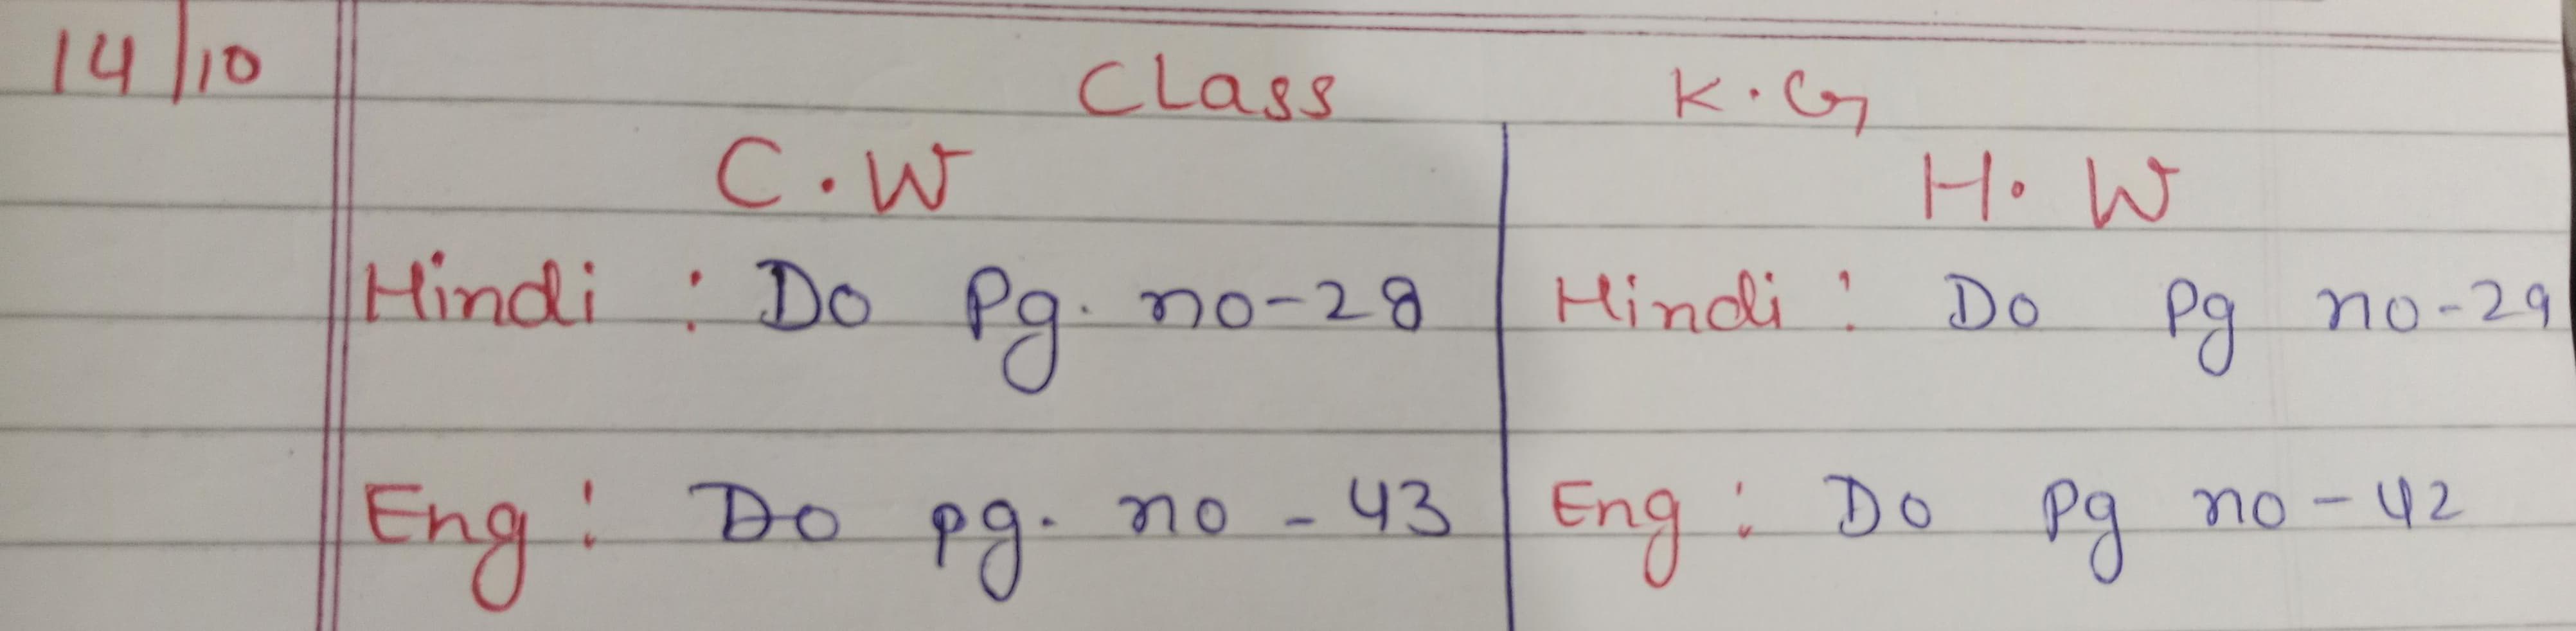 14/10 Class K.G
C.W H.W
Hindi : Do Pg. no-28 Hindi : Do Pg no-29
Eng : Do pg. no - 43 Eng : Do Pg no - 42